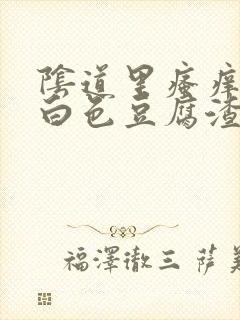 陰道里瘙痒
白色豆腐渣
福澤徹三 萨美